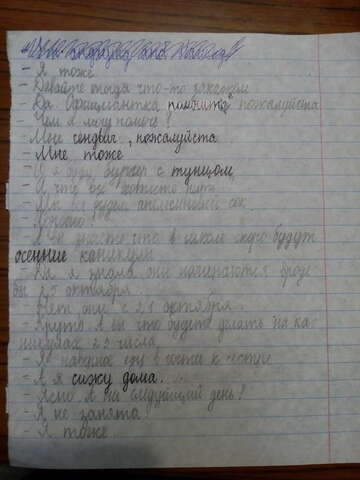 - Я тоже
- Давайте тогда что-то закажем
- Да. Официантка, помогите, пожалуйста
- Чем я могу помочь?
- Мне сендвич, пожалуйста
- Мне тоже
- А я буду бургер с тунцом
- А что вы хотите пить
- Мы все будем апельсиновый сок
- Хорошо!
- А вы знаете что в школе скоро будут
осенние каникулы
- Да я знаю они начинаются вроде
бы 25 октября
- Нет они с 21 октября.
- Круто А вы что будете делать на ка-
никулах 23 числа,
- Я наверное еду в гости к сестре
- А я сижу дома.
- Ясно А на следующий день?
- Я не занята
- Я тоже